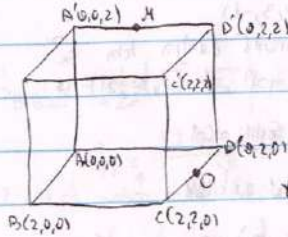 A'(0,0,2) M D'(0,2,2)
C'(2,2,2)
A(0,0,0) D(0,2,0)
O
B(2,0,0) C(2,2,0)